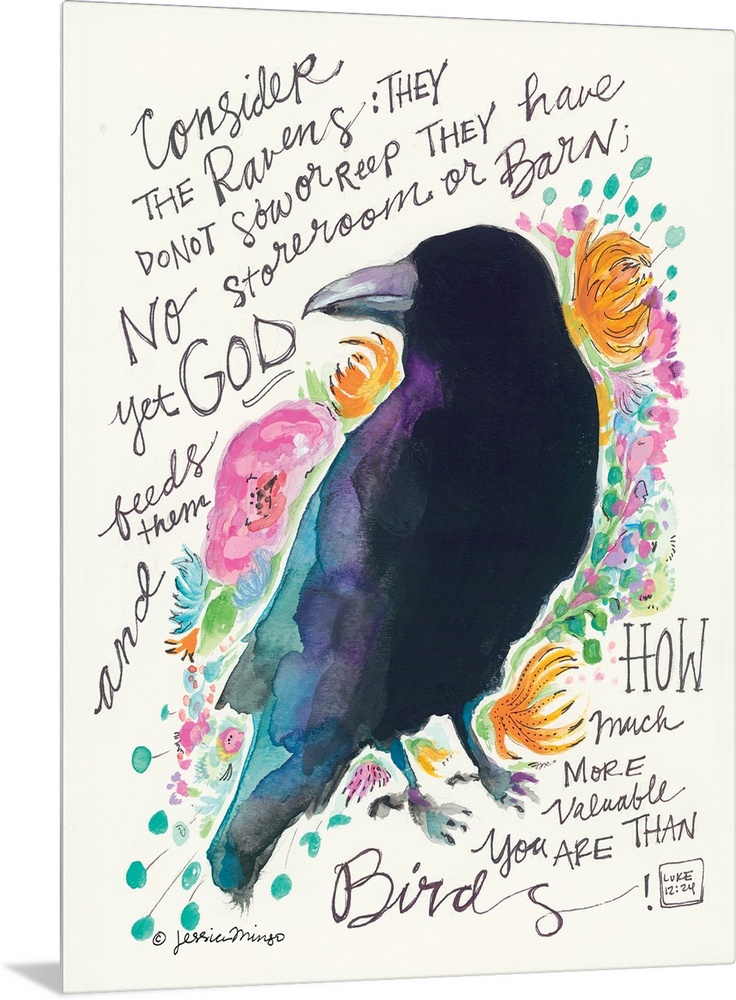 Consider
THE Ravens: THEY
DO NOT SOW OR Reep THEY have
NO storeroom or BARN;
yet GOD
feeds
them
and
HOW
much
MORE
Valuable
you ARE THAN
Birds!
LUKE
12:24
© Jessica Mingo